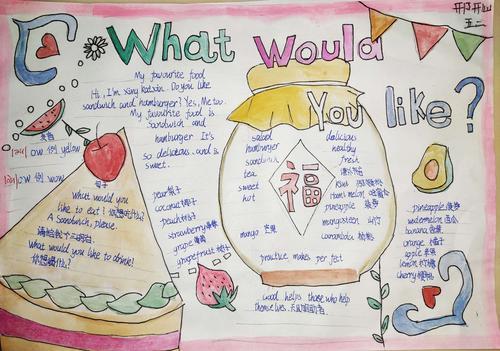 What Would
You like?
五二
My favourite food
Hi, I'm xing kaixin. Do you like
sandwich and hamburger? Yes, Me too.
My favourite food is
Sandwich and
hamburger It's
so delicious and is
sweet.
ow 例 yellow
ow 例 wow
What would you
like to eat? 你想吃什么?
A Sandwich, please.
What would you like to drink?
你想喝什么?
pear 梨子
coconut 椰子
peach 桃子
strawberry 草莓
grape 葡萄
grapefruit 柚子
salad
hamburger
sandwich
tea
sweet
hot
mango 芒果
福
delicious
healthy
fresh
kiwi
Hami melon 哈密瓜
pineapple 菠萝
mangosteen 山竹
carambola 杨桃
practice makes per fect
good helps those who help
themselves.天助自助者
pineapple 菠萝
watermelon 西瓜
banana 香蕉
orange 橘子
apple 苹果
lemon 柠檬
cherry 樱桃